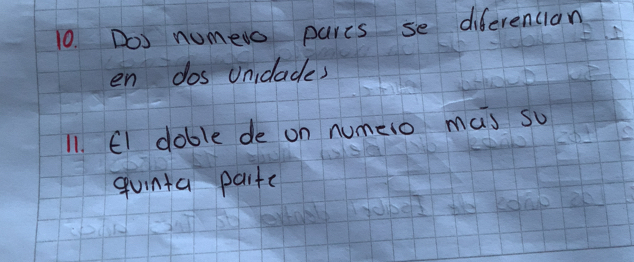 10. Dos numero pares se diferencian
en dos unidades
11. El doble de un numero más su
quinta parte